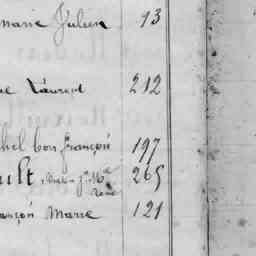 marie Julien 93
ne Laurent 212
chel bon françois 197
ult 265
ançois Marie 121